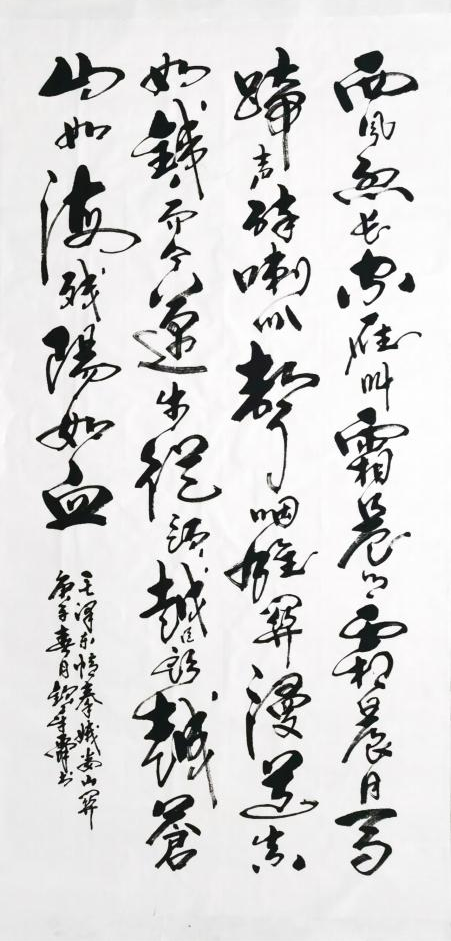 西风烈长空雁叫霜晨月霜晨月马
蹄声碎喇叭聲咽雄関漫道真
如鐵而今邁步從頭越從頭越蒼
山如海残陽如血
毛泽东憶秦娥娄山関
庚子春月书